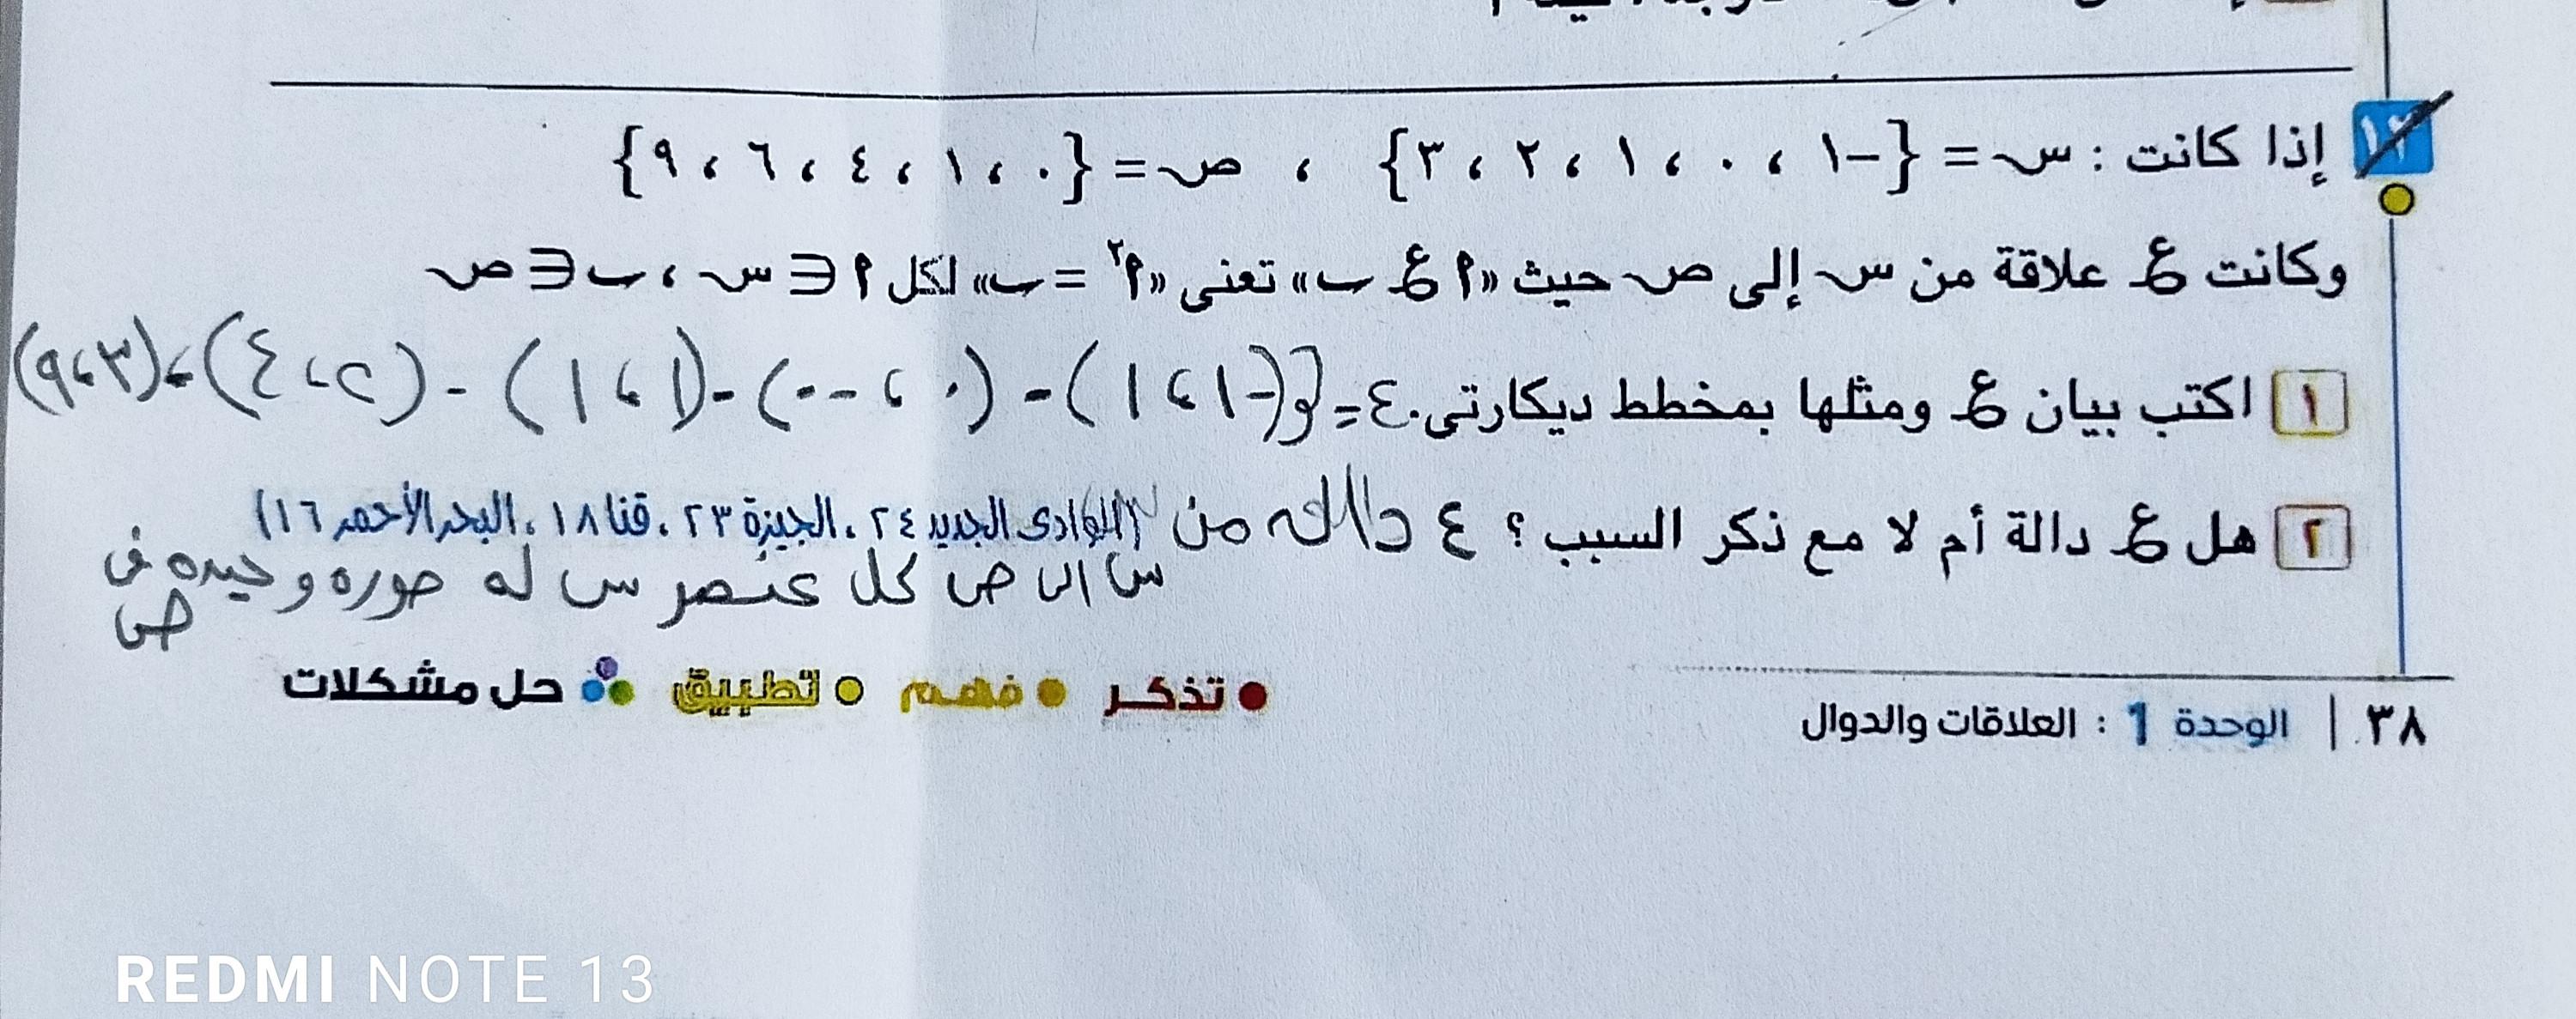 ١٢ إذا كانت : س = {-١ ، ٠ ، ١ ، ٢ ، ٣} ، ص = {٠ ، ١ ، ٤ ، ٦ ، ٩}
وكانت ع علاقة من س إلى ص حيث «أ ع ب» تعنى «أ² = ب» لكل أ ∈ س ، ب ∈ ص
١ اكتب بيان ع ومثلها بمخطط ديكارتى. ع = {(-١ ، ١) - (٠ ، -٠) - (١ ، ١) - (٢ ، ٤) ، (٣ ، ٩)
٢ هل ع دالة أم لا مع ذكر السبب ؟ ع داله من (الوادى الجديد ٢٤ ، الجيزة ٢٣ ، قنا ١٨ ، البحر الأحمر ١٦)
س الى ص كل عنصر س له صوره وحيده فى
ص
• تذكر • فهم ○ تطبيق حل مشكلات
٣٨ | الوحدة 1 : العلاقات والدوال
REDMI NOTE 13